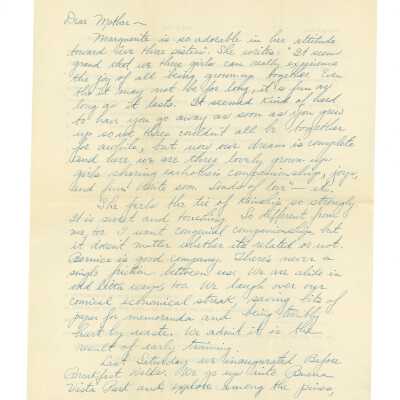 Dear Mother ~
Marguerite is so adorable in her attitude
toward "we three sisters". She writes: "It seems
grand that we three girls can really experience
the joy of all being grownup together. Even
tho it may not be for long, it's fun as
long as it lasts. It seemed kind of hard
to have you go away as soon as you grew
up so we three couldn't all be together
for awhile, but now our dream is complete
and here we are three lovely grown up
girls sharing each other's companionship, joys,
and fun! Write soon. Loads of love" — etc.
She feels the tie of kinship so strongly.
It is sweet and touching. So different from
me, for I want congenial companionship but
it doesn't matter whether it's related or not.
Bernice is good company. There's never a
single friction between us. We are alike in
odd little ways too. We laugh over our
comical economical streak, saving bits of
paper for memoranda and being terribly
hurt by waste. We admit it is the
result of early training.
Last Saturday we inaugurated Before
Breakfast Walks. We go up into Buena
Vista Park and explore among the pines,